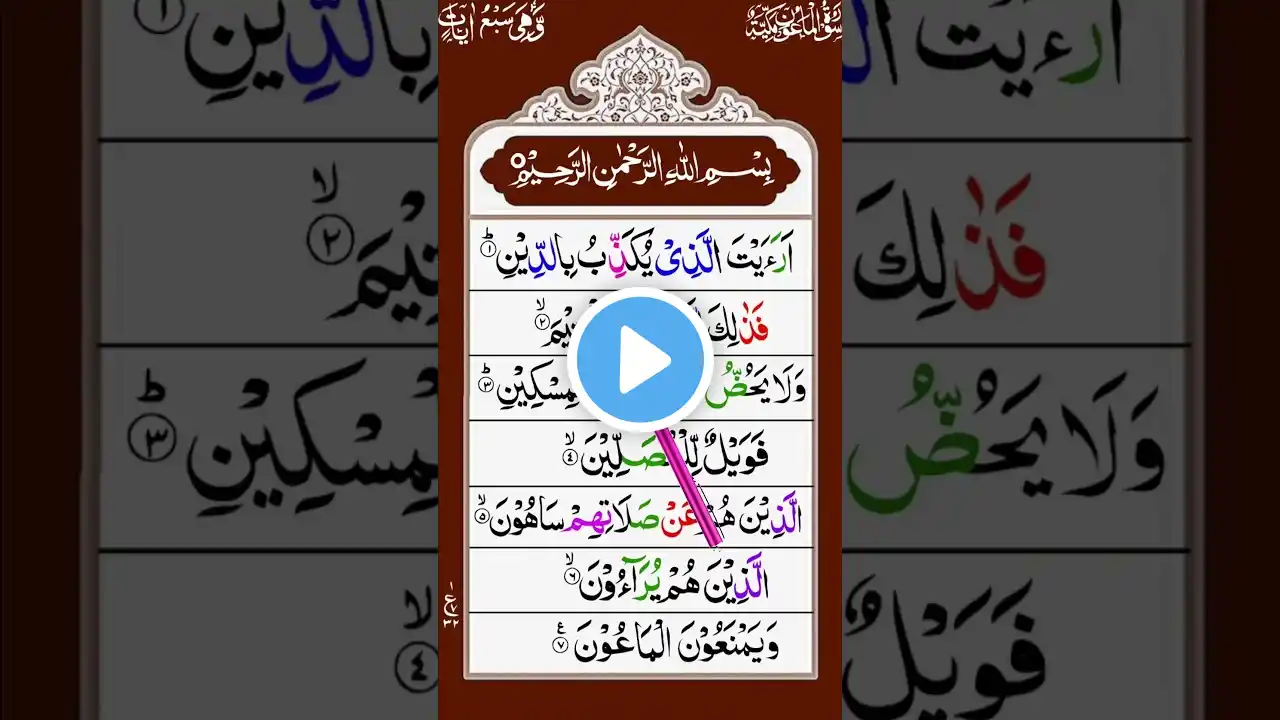 سُوْرَةُ الْمَاعُوْنِ مَكِّيَّةٌ
وَّهِىَ سَبْعُ اٰيَاتٍ
بِسْمِ اللّٰهِ الرَّحْمٰنِ الرَّحِيْمِ
اَرَءَيْتَ الَّذِىْ يُكَذِّبُ بِالدِّيْنِ ؕ ١
فَذٰلِكَ ۙ ٢
وَلَا يَحُضُّ ؕ ٣
فَوَيْلٌ لِّلْمُصَلِّيْنَ ۙ ٤
الَّذِيْنَ هُمْ عَنْ صَلَاتِهِمْ سَاهُوْنَ ۙ ٥
الَّذِيْنَ هُمْ يُرَآءُوْنَ ۙ ٦
وَيَمْنَعُوْنَ الْمَاعُوْنَ ٧